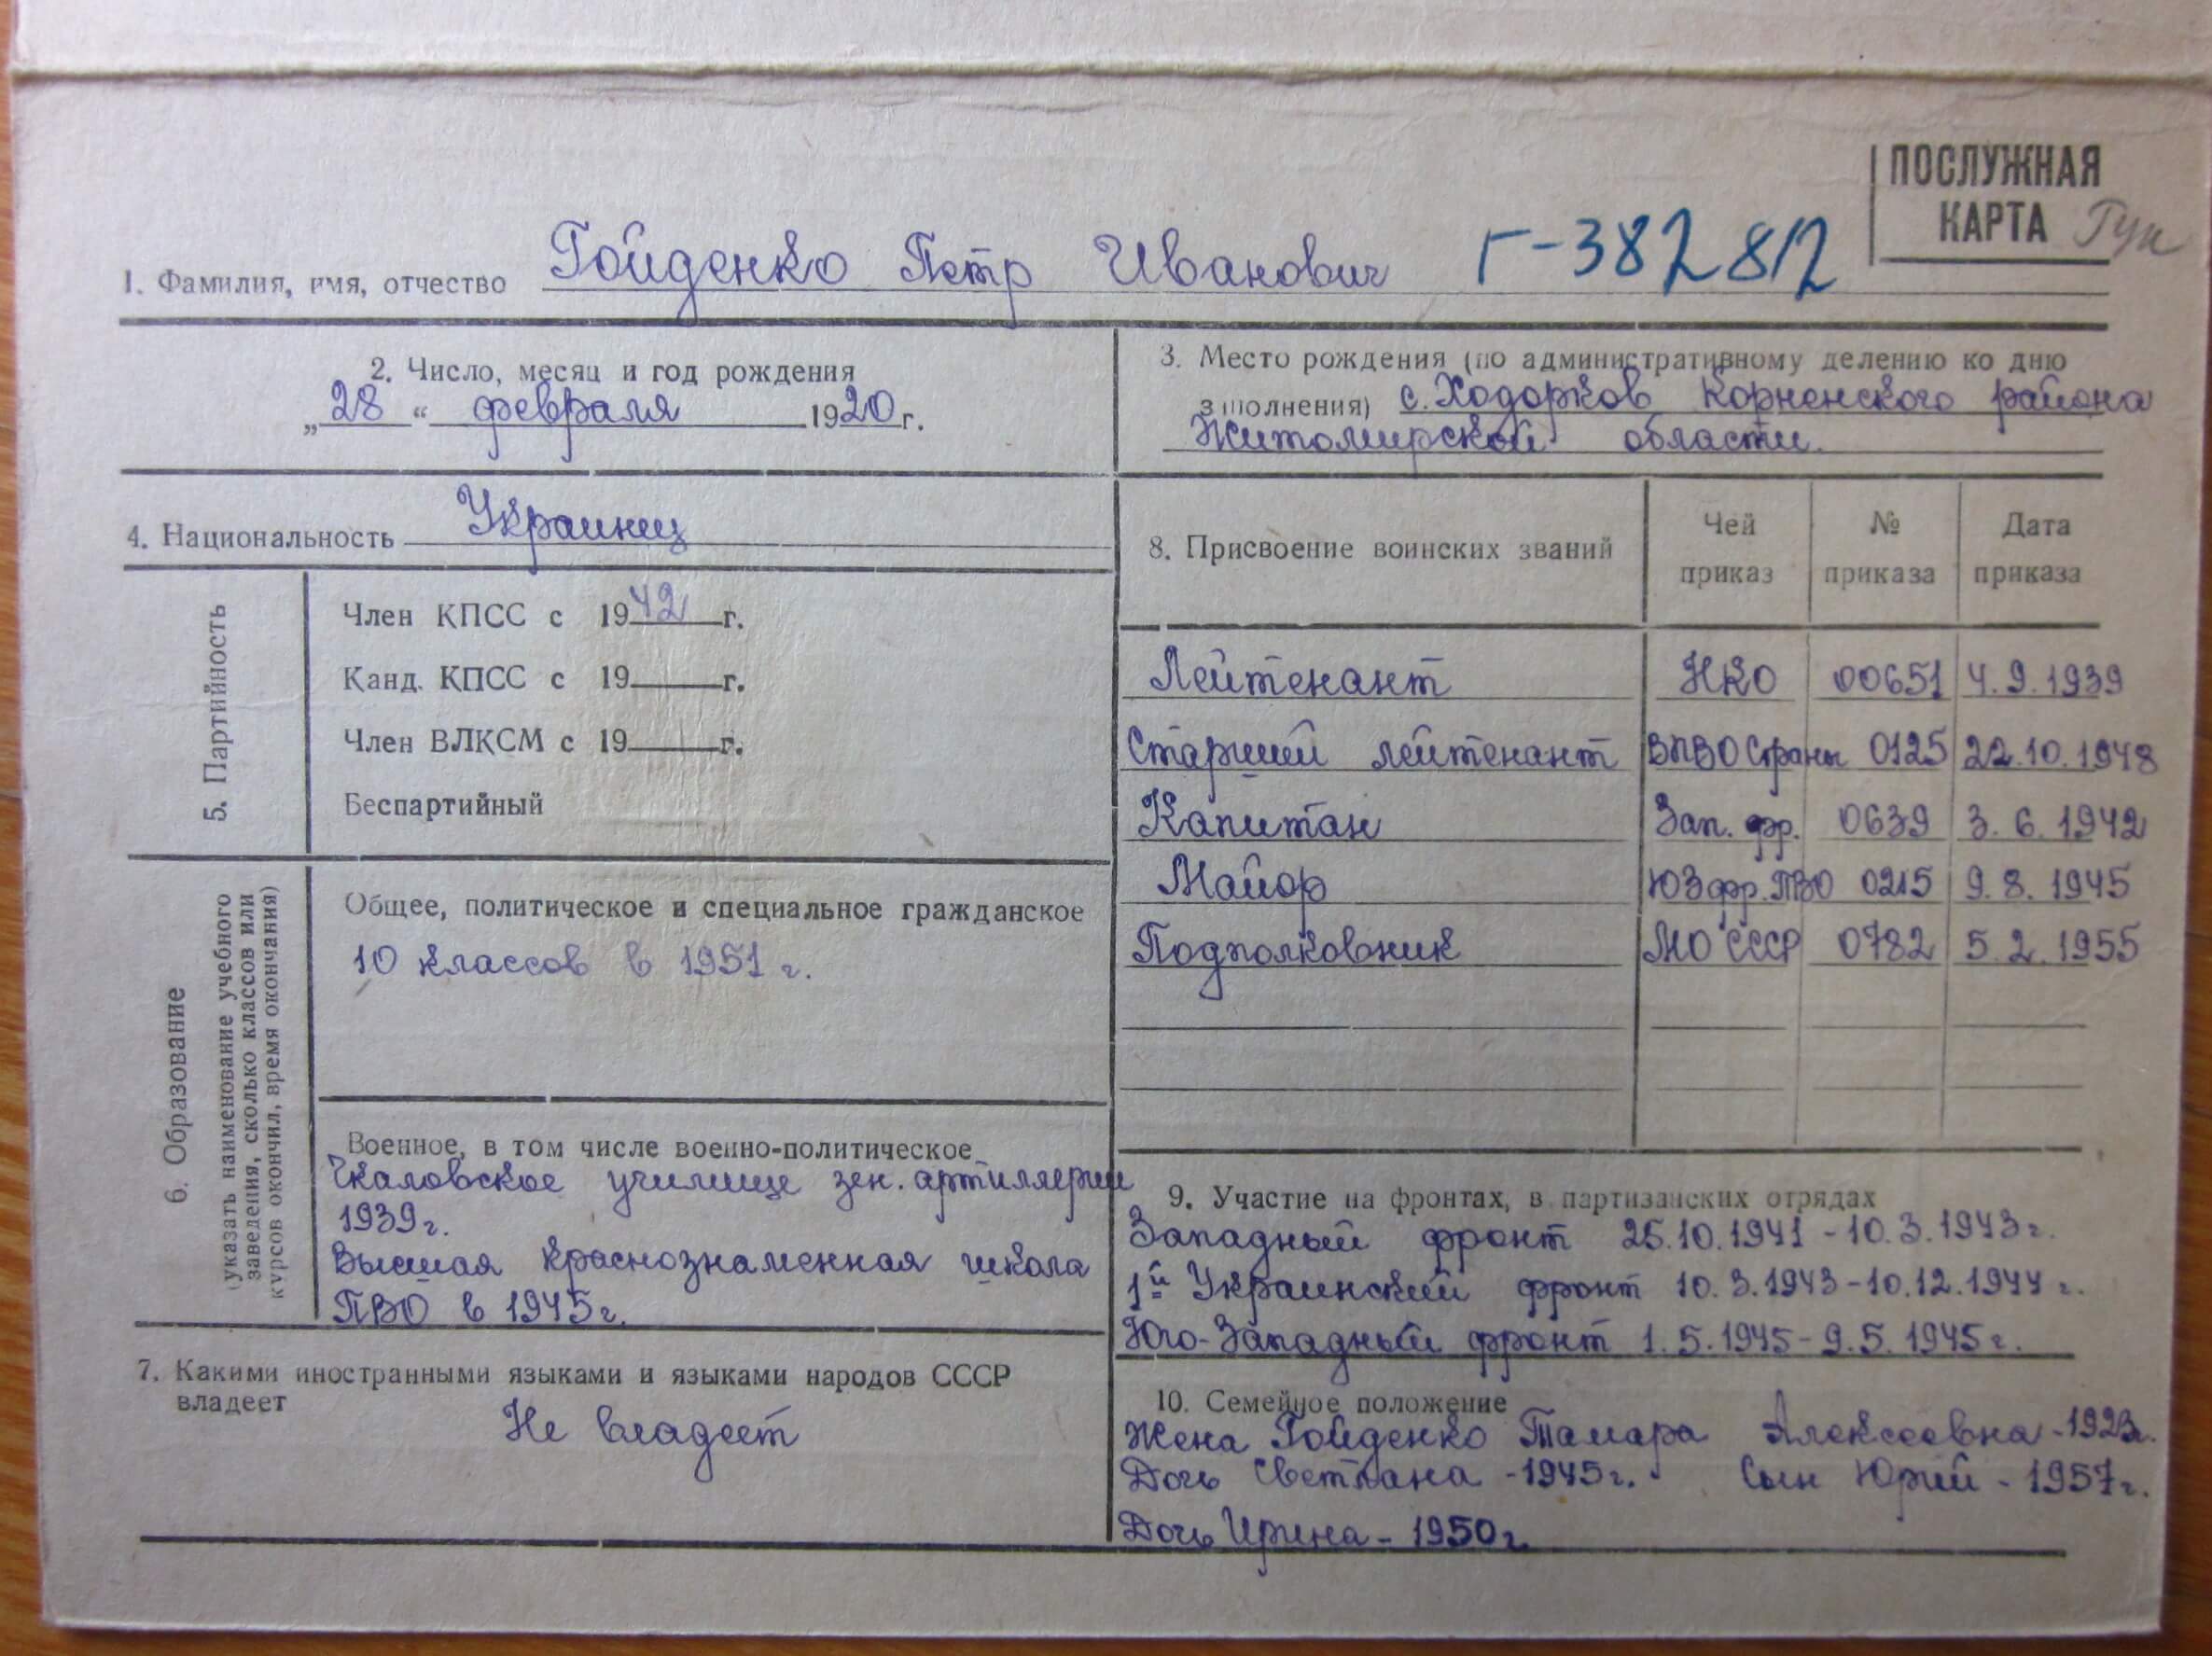 ПОСЛУЖНАЯ
КАРТА
1. Фамилия, имя, отчество Гойденко Петр Иванович Г-382812
2. Число, месяц и год рождения
„28“ февраля 1920 г.
3. Место рождения (по административному делению ко дню
заполнения) с. Ходорков Корненского района
Житомирской области.
4. Национальность Украинец
5. Партийность
Член КПСС с 1942 г.
Канд. КПСС с 19 г.
Член ВЛКСМ с 19 г.
Беспартийный
6. Образование
(указать наименование учебного
заведения, сколько классов или
курсов окончил, время окончания)
Общее, политическое и специальное гражданское
10 классов в 1951 г.
Военное, в том числе военно-политическое
Чкаловское училище зен. артиллерии
1939 г.
Высшая краснознаменная школа
ПВО в 1945 г.
7. Какими иностранными языками и языками народов СССР
владеет
Не владеет
8. Присвоение воинских званий Чей приказ № приказа Дата приказа
Лейтенант НКО 00651 4.9.1939
Старший лейтенант ВПВО Страны 0125 22.10.1948
Капитан Зап. фр. 0639 3.6.1942
Майор ЮЗ фр. ПВО 0215 9.8.1945
Подполковник МО СССР 0782 5.2.1955
9. Участие на фронтах, в партизанских отрядах
Западный фронт 25.10.1941 - 10.3.1943 г.
1й Украинский фронт 10.3.1943 - 10.12.1944 г.
Юго-Западный фронт 1.5.1945 - 9.5.1945 г.
10. Семейное положение
Жена Гойденко Тамара Алексеевна - 1923 г.
Дочь Светлана - 1945 г. Сын Юрий - 1957 г.
Дочь Ирина - 1950 г.